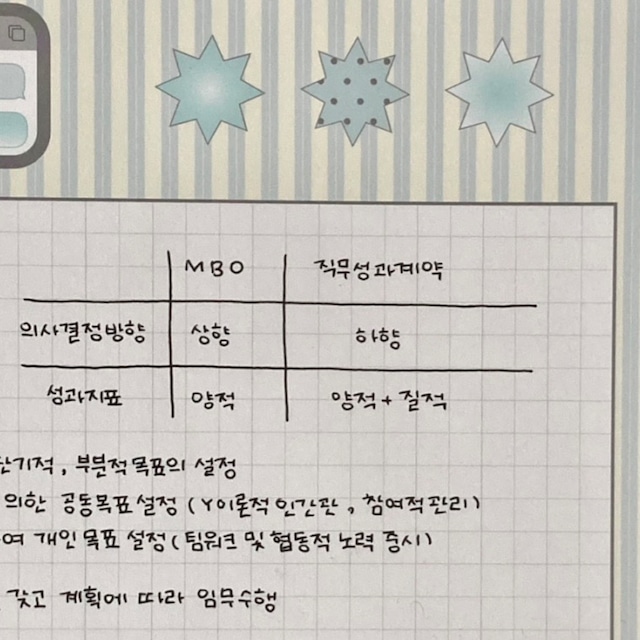 MBO 직무성과계약
의사결정방향 상향 하향
성과지표 양적 양적 + 질적
단기적, 부분적 목표의 설정
의한 공동목표설정 (Y이론적 인간관, 참여적 관리)
여 개인 목표 설정 (팀워크 및 협동적 노력 중시)
갖고 계획에 따라 임무수행